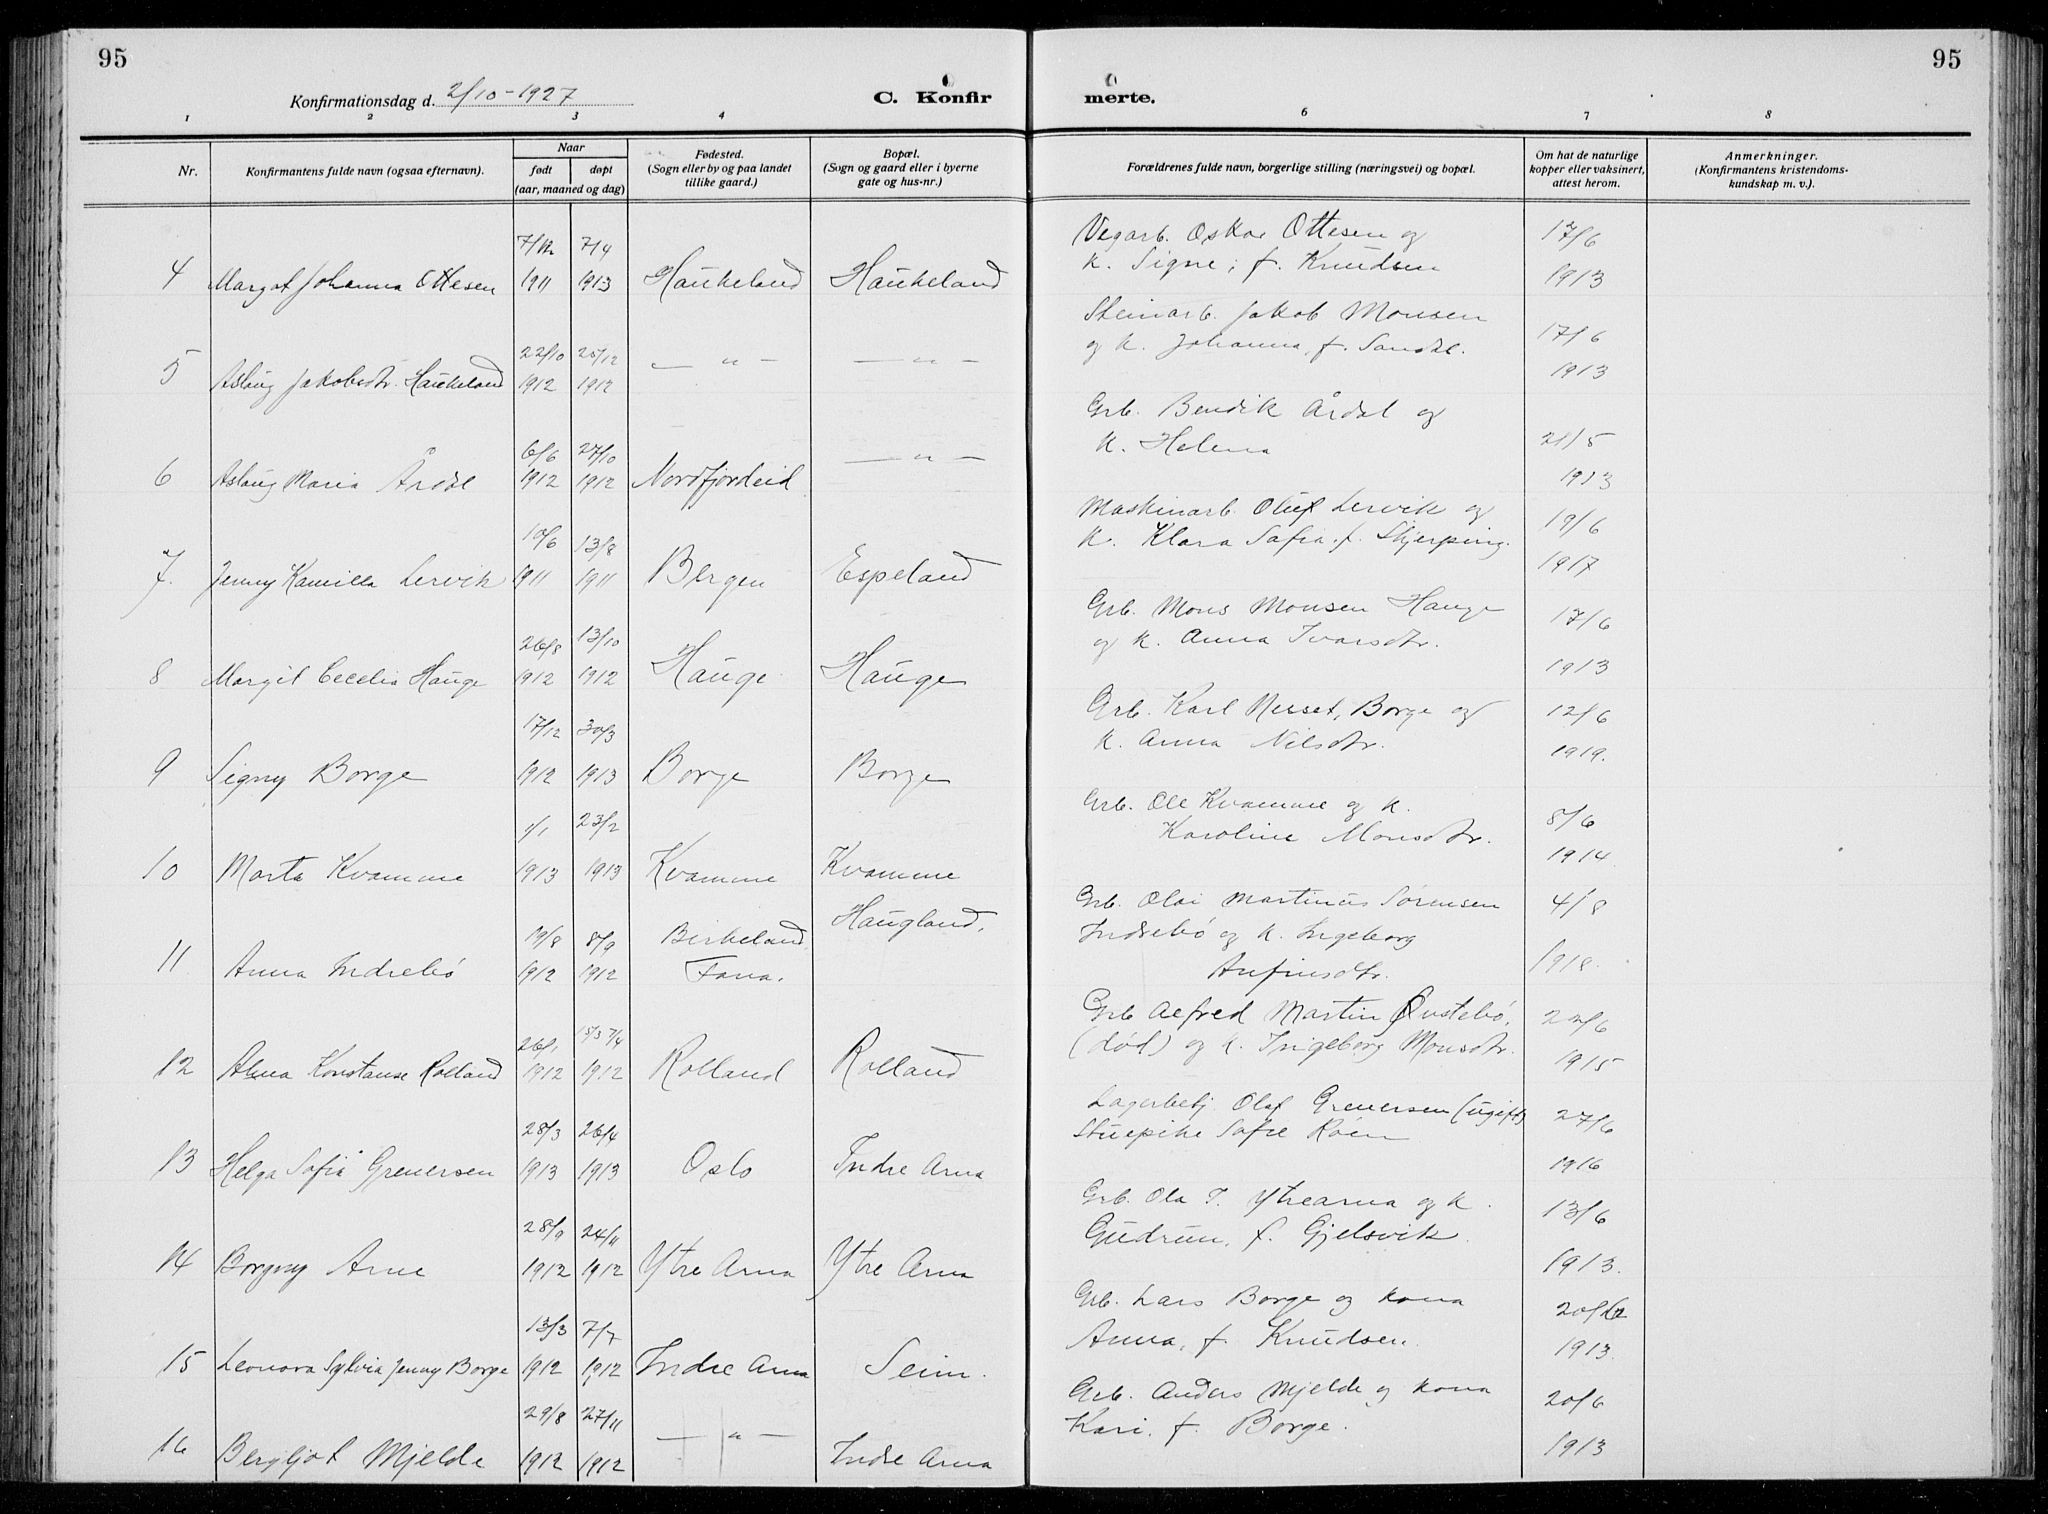 95
Konfirmationsdag d. 2/10-1927
C. Konfir
1 2 3 4
Nr.
Konfirmantens fulde navn (ogsaa efternavn).
Naar
født døpt
(aar, maaned og dag)
Fødested.
(Sogn eller by og paa landet
tillike gaard.)
Bopæl.
(Sogn og gaard eller i byerne
gate og hus-nr.)
7/12 7/4
4 Margot Johanna Ottesen 1911 1913 Haukeland Haukeland
22/10 25/12
5 Aslaug Jakobsdtr. Haukeland 1912 1912 — " — — " —
6/6 27/10
6 Aslaug Maria Årdal 1912 1912 Nordfjordeid — " —
10/6 13/8
7. Jenny Kamilla Lervik 1911 1911 Bergen Espeland
26/8 13/10
8 Margit Cecelia Hauge 1912 1912 Hauge Hauge
17/12 30/3
9 Signy Borge 1912 1913 Borge Borge
1/1 23/2
10 Marta Kvamme 1913 1913 Kvamme Kvamme
19/8 8/9 Birkeland, Haugland,
11 Anna Indrebö 1912 1912 Fana.
26/1 15/3 7/4
12 Alma Konstanse Rolland 1912 1912 Rolland Rolland
28/3 26/4
13 Helga Sofia Grenersen 1913 1913 Oslo Indre Arna
28/9 24/11
14 Borgny Arne 1912 1912 Ytre Arna Ytre Arna
13/3 7/7
15 Leonora Sylvia Jenny Borge 1912 1912 Indre Arna Seim.
29/8 27/11
16 Bergljot Mjelde 1912 1912 — " — Indre Arna
95
merte.
6 7 8
Forældrenes fulde navn, borgerlige stilling (næringsvei) og bopæl.
Om hat de naturlige
kopper eller vaksinert,
attest herom.
Anmerkninger.
(Konfirmantens kristendoms-
kundskap m. v.).
Vegarb. Oskar Ottesen og 17/6
k. Signe, f. Knudsen 1913
Steinarb. Jakob Monsen 17/6
og k. Johanna, f. Sandal. 1913
Grb. Bendik Årdal og
k. Helena 21/5
1913
Maskinarb. Oluf Lervik og 19/6
k. Klara Sofia f. Skjerping. 1917
Grb. Mons Monsen Hauge 17/6
og k. Anna Ivarsdtr. 1913
Grb. Karl Nesset, Borge og 12/6
k. Anna Nilsdtr. 1919.
Grb. Ole Kvamme og k. 8/6
Karoline Monsdtr. 1914
Grb. Olai Martinus Sørensen 4/8
Indrebö og k. Ingeborg
Anfinsdtr. 1918.
Grb Alfred Martin Øvstebö, 22/6
(död) og k. Ingeborg Monsdtr. 1915
Lagerbetj. Olaf Grenersen (ugift) 27/6
Stuepike Sofie Roen 1916
Grb. Ola T. Ytrearna og k. 13/6
Gudrun, f. Gjelsvik 1913.
Grb. Lars Borge og kona 20/12
Anna, f. Knudsen. 1913.
Grb. Anders Mjelde og kona 20/6
Kari, f. Borge. 1913